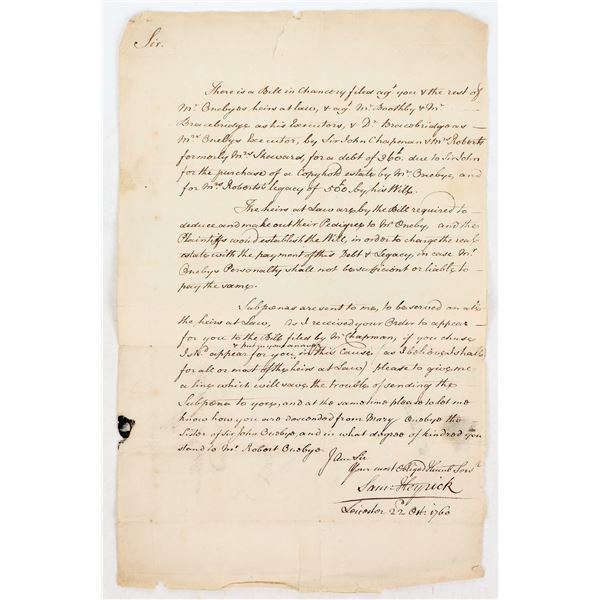 Sir.
There is a Bill in Chancery filed agt. you & the rest of
Mr. Onebyes heirs at law, & agt. Mr. Boothby & Mr.
Bracebridge as his Executors, & Mr. Bracebridge as
Mrs. Onebys Executor, by Sir John Chapman & Mrs. Roberts
formerly Mrs. Steward, for a debt of 360£. due to Sir John
for the purchase of a Copyhold estate by Mr. Onebye, and
for Mrs. Roberts's legacy of 500£. by his Will.
The heirs at Law are by the Bill required to
deduce and make out their Pedigree to Mr. Oneby, and the
Plaintiffs would establish the Will, in order to charge the real
estate with the payment of this Debt & Legacy, in case Mr.
Onebys Personalty shall not be sufficient or liable to
pay the same.
Subpœnas are sent to me, to be served on all
the heirs at Law, As I received your Order to appear
for you to the Bill filed by Mr. Chapman, if you chuse
I shd. appear for you & put in your answer in this Cause (as I believe I shall
for all or most of the heirs at Law) please to give me
a line which will save the trouble of sending the
Subpœna to you, and at the same time please to let me
know how you are descended from Mary Onebye the
Sister of Sir John Onebye, and in what degree of kindred you
stand to Mr. Robert Onebye.
I am Sir
Your most Obliged Humb. Servt.
Sam. Heyrick
Leicester 22 Octr. 1760